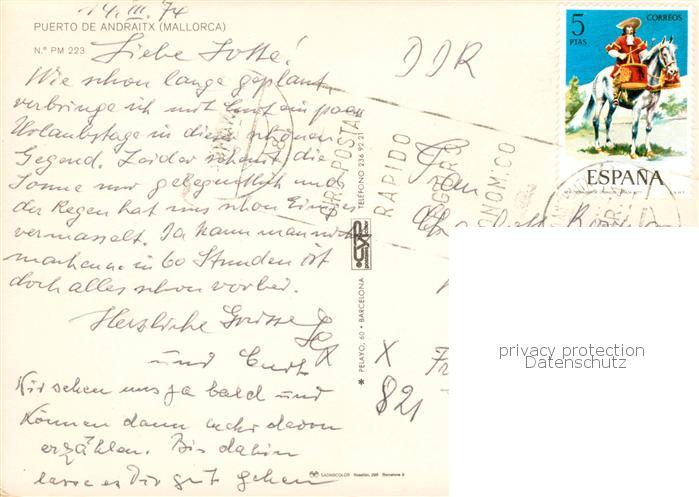 14. III. 74
PUERTO DE ANDRAITX (MALLORCA)
N.º PM 223
Liebe Lotte!
Wie schon lange geplant
verbringe ich mit Curt ein paar
Urlaubstage in dieser schönen
Gegend. Leider scheint die
Sonne nur gelegentlich und
der Regen hat uns schon Einiges
vermasselt. Da kann man nichts
machen. in 60 Stunden ist
doch alles schon vorbei.
Herzliche Grüsse
und Curt
Wir sehen uns ja bald und
können dann mehr davon
erzählen. Bis dahin
lass es Dir gut gehen
SADAGCOLOR Rosellón, 298 Barcelona 9
PELAYO, 60 • BARCELONA
TELÉFONO 236 92 21
DDR
GIRO POSTAL
RAPIDO
SEGURO
ECONOMICO
Frau
X
821
5
PTAS
CORREOS
ESPAÑA
privacy protection
Datenschutz